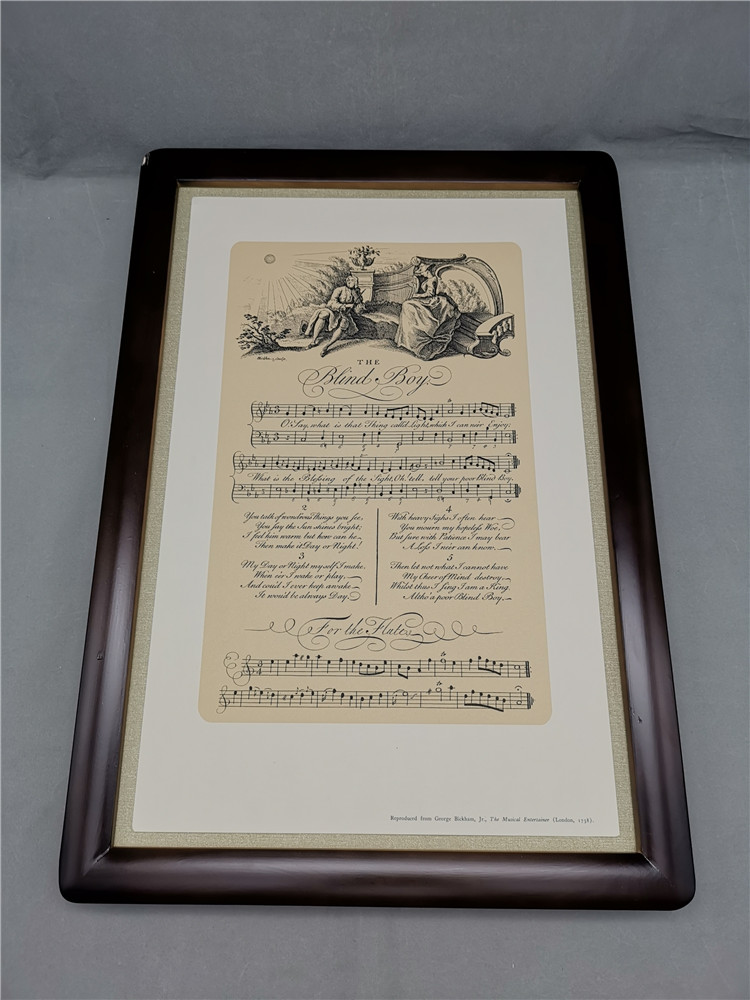 THE
Blind Boy.
O! Say, what is that Thing call'd Light, which I can ne'er Enjoy;
What is the Blessing of the Sight, Oh! tell, tell your poor Blind Boy.
2
You talk of wond'rous Things you see,
You say the Sun shines bright;
I feel him warm but how can he
Then make it Day or Night?
3
My Day or Night my self I make
When e'er I wake or play,
And cou'd I ever keep awake
It wou'd be always Day.
4
With heavy Sighs I often hear
You mourn my hopeless Woe,
But sure with Patience I may bear
A Loss I ne'er can know.
5
Then let not what I cannot have
My Cheer of Mind destroy,
Whilst thus I sing I am a King
Altho' a poor Blind Boy.
For the Flute
Reproduced from George Bickham, Jr., The Musical Entertainer (London, 1738).